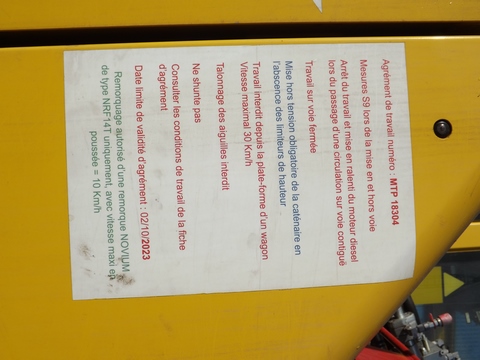 Agrément de travail numéro : MTP 18304
Mesures S9 lors de la mise en et hors voie
Arrêt du travail et mise en ralenti du moteur diesel
lors du passage d'une circulation sur voie contiguë
Travail sur voie fermée
Mise hors tension obligatoire de la caténaire en
l'abscence des limiteurs de hauteur
Travail interdit depuis la plate-forme d'un wagon
Vitesse maximal 30 Km/h
Talonnage des aiguilles interdit
Ne shunte pas
Consulter les conditions de travail de la fiche
d'agrément
Date limite de validité d'agrément : 02/10/2023
Remorquage autorisé d'une remorque NOVIUM
de type NRF14T uniquement, avec vitesse maxi en
poussée = 10 Km/h